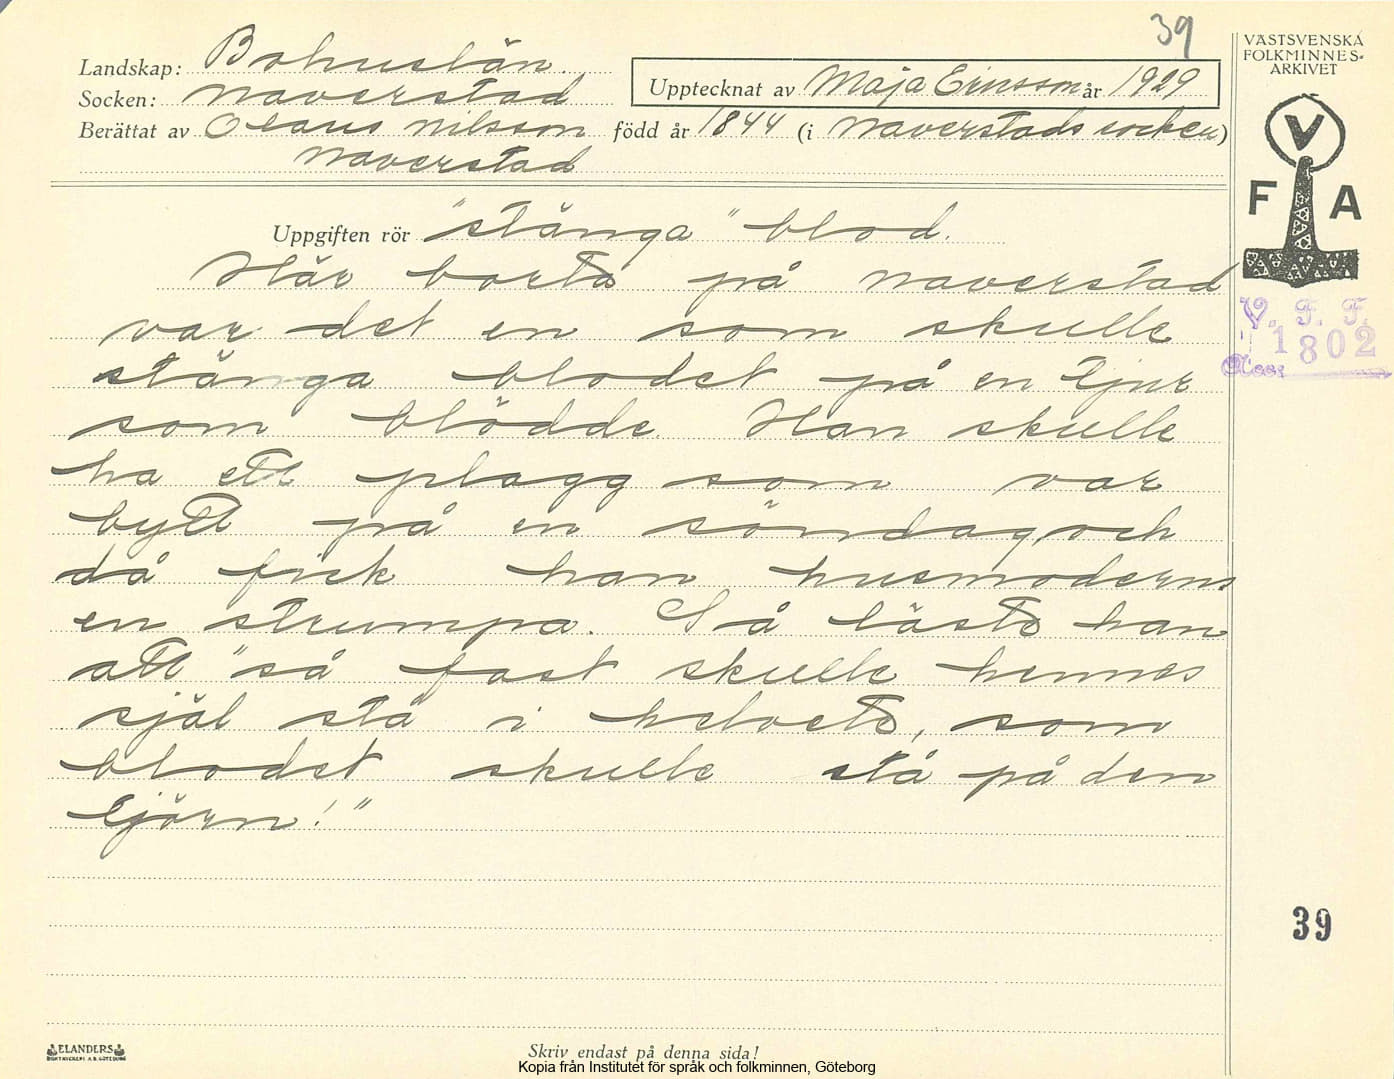 39
VÄSTSVENSKA
FOLKMINNES-
ARKIVET
Landskap: Bohuslän
Socken: Naverstad
Upptecknat av Maja Ericsson år 1929
Berättat av Olaus Nilsson född år 1844 (i Naverstads socken)
Naverstad
V
F A
Uppgiften rör "stånga" blod.
Här borta på Naverstad
var det en som skulle
stånga blodet på en tjur
som blödde. Han skulle
ha ett plagg som var
bytt på en söndag, och
då fick han husmoderns
en strumpa. Så läste han
att "så fast skulle hennes
själ stå i helvete, som
blodet skulle stå på den
tjörn!"
V. F. F.
1802
Acc:
39
ELANDERS
BOKTRYCKERI A.B. GÖTEBORG
Skriv endast på denna sida!
Kopia från Institutet för språk och folkminnen, Göteborg